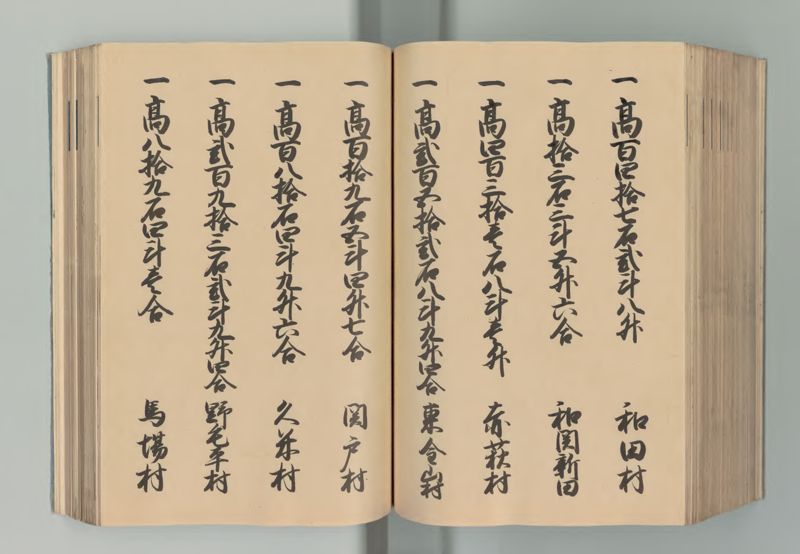 一高百四拾七石弐斗八升 和田村
一高拾三石三斗五升六合 和関新田
一高四百三拾壱石八斗壱升 赤萩村
一高弐百五拾弐石八斗九升四合 東金山村
一高百拾九石五斗四升七合 関戸村
一高百八拾石四斗九升六合 久米村
一高弐百九拾三石弐斗九升四合 野毛平村
一高八拾九石四斗壱合 馬場村